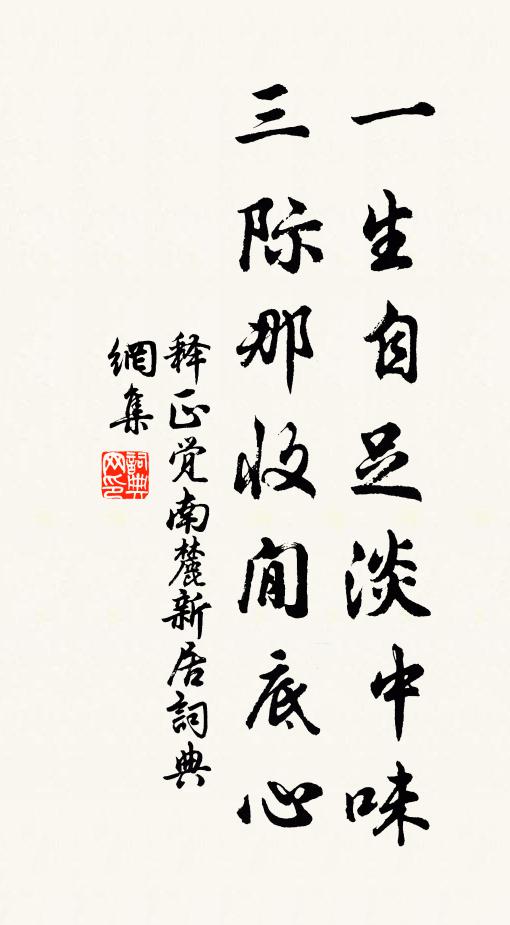 一生自足淡中味
三际那收闹底心
释正觉南麓新居詞典
網集
詞典
网印